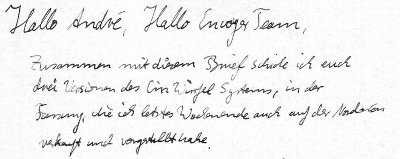 Hallo André, Hallo Envoyer Team,
Zusammen mit diesem Brief schicke ich euch
drei Versionen des Ein Würfel Systems, in der
Fassung, die ich letztes Wochenende auch auf der NordCon
verkauft und vorgestellt habe.